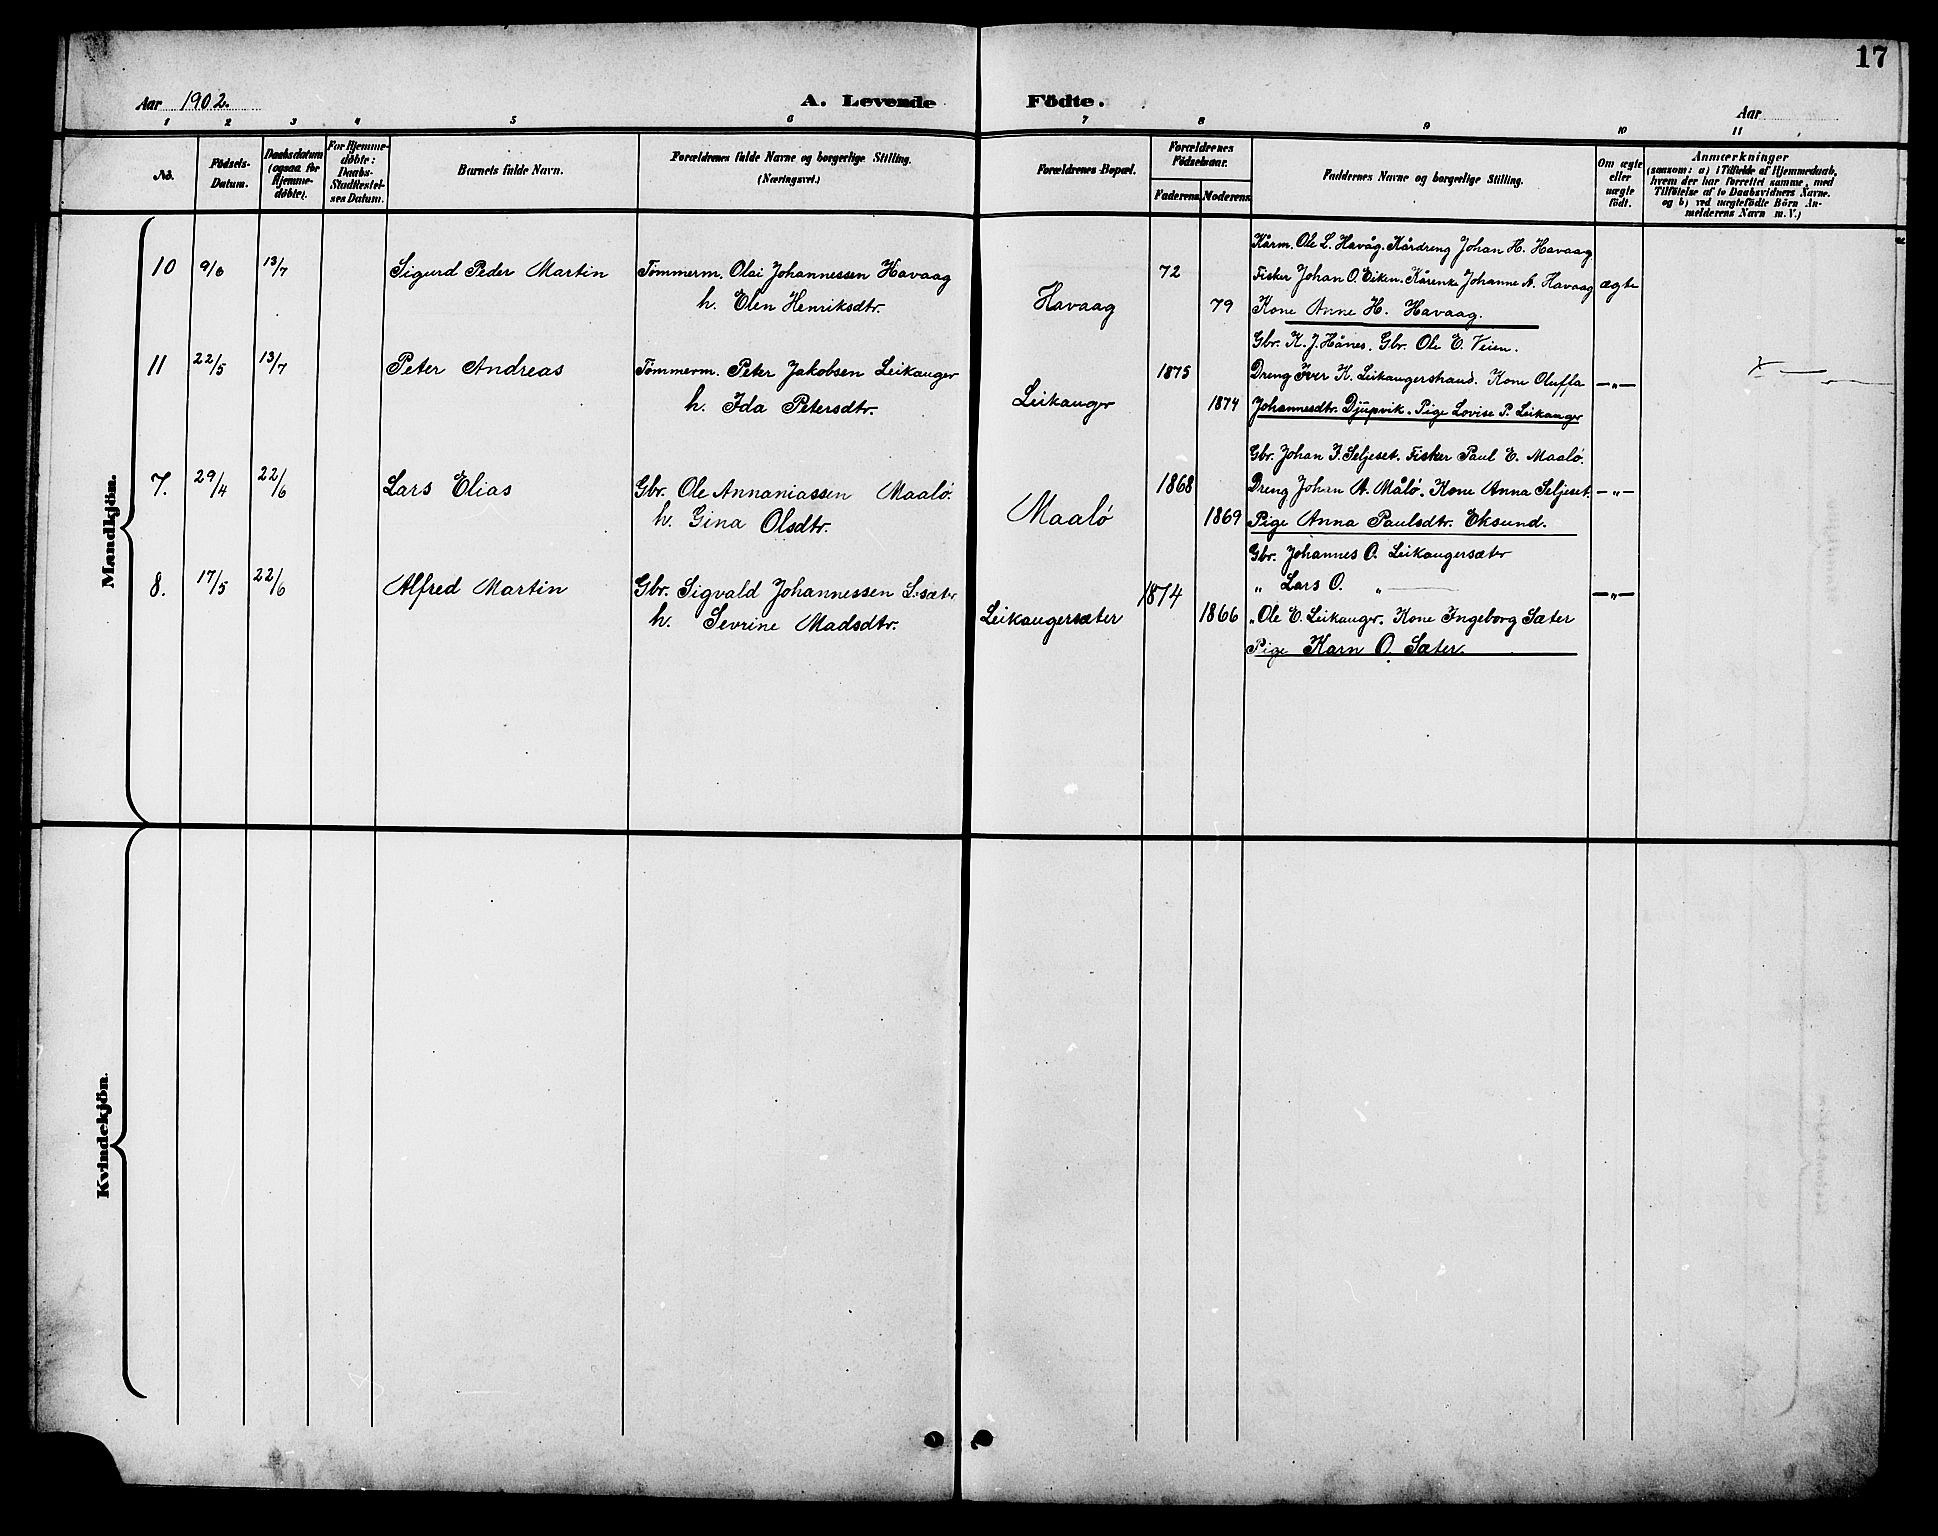 17
Aar 1902.
A. Levende Födte.
Aar
1 2 3 4 5 6 7 8 9 10 11
No.
Födsels-Datum.
Daabsdatum (ogsaa for Hjemme-døbte).
For Hjemme-døbte: Daabs-Stadfæstel-ses Datum.
Barnets fulde Navn.
Forældrenes fulde Navne og borgerlige Stilling. (Næringsvei.)
Forældrenes Bopæl.
Forældrenes Fødselsaar.
Faderens
Moderens
Faddernes Navne og borgerlige Stilling.
Om ægte eller uægte født.
Anmærkninger
(saasom: a) i Tilfælde af Hjemmedaab,
hvem der har forrettet samme, med
Tilføielse af to Daabsvidners Navne.
og b) ved uægtefødte Børn An-
melderens Navn m. V.)
Mandkjön.
10 9/6 13/7 Sigurd Peder Martin Tömmerm. Olai Johannessen Havaag
h. Elen Henriksdtr.
Havaag 72 79
Kårm. Ole L. Havåg. Kårdreng Johan H. Havaag
Fisker Johan O. Eiken. Kårenke Johanne A. Havaag
Kone Anne H. Havaag.
ægte
11 22/5 13/7 Peter Andreas Tömmerm. Peter Jakobsen Leikanger
h. Ida Petersdtr.
Leikanger 1875 1874
Gbr. K. J. Hånes. Gbr. Ole E. Veien.
Dreng Iver K. Leikangerstrand. Kone Oluffa
Johannesdtr. Djupvik. Pige Lovise P. Leikanger
—„—
7. 29/4 22/6 Lars Elias Gbr. Ole Annaniassen Maalö.
h. Gina Olsdtr.
Maalö 1868 1869
Gbr. Johan J. Seljeset. Fisker Paul E. Maalö.
Dreng Johan A. Målö. Kone Anna Seljeset.
Pige Anna Paulsdtr. Eksund.
—„—
8. 17/5 22/6 Alfred Martin Gbr. Sigvald Johannessen L.sæter
h. Sevrine Madsdtr.
Leikangersæter 1874 1866
Gbr. Johannes O. Leikangersæter
„ Lars O. „
„ Ole E. Leikanger. Kone Ingeborg Sæter
Pige Karn O. Sæter.
—„—
Kvindekjön.